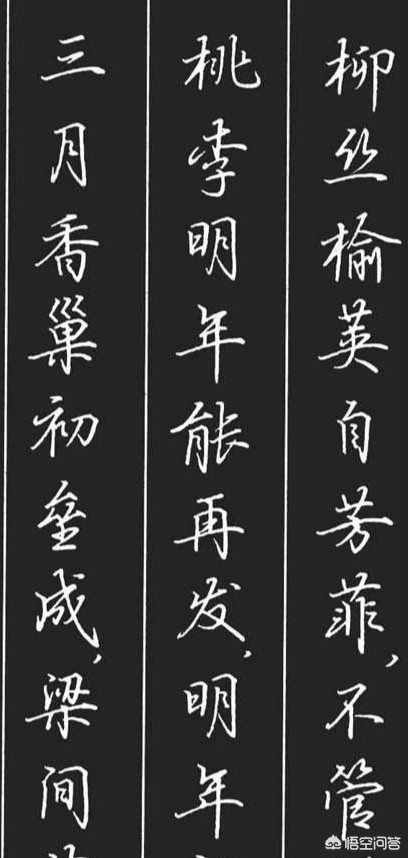 柳丝榆荚自芳菲,不管
桃李明年能再发,明年
三月香巢初垒成,梁间
悟空问答